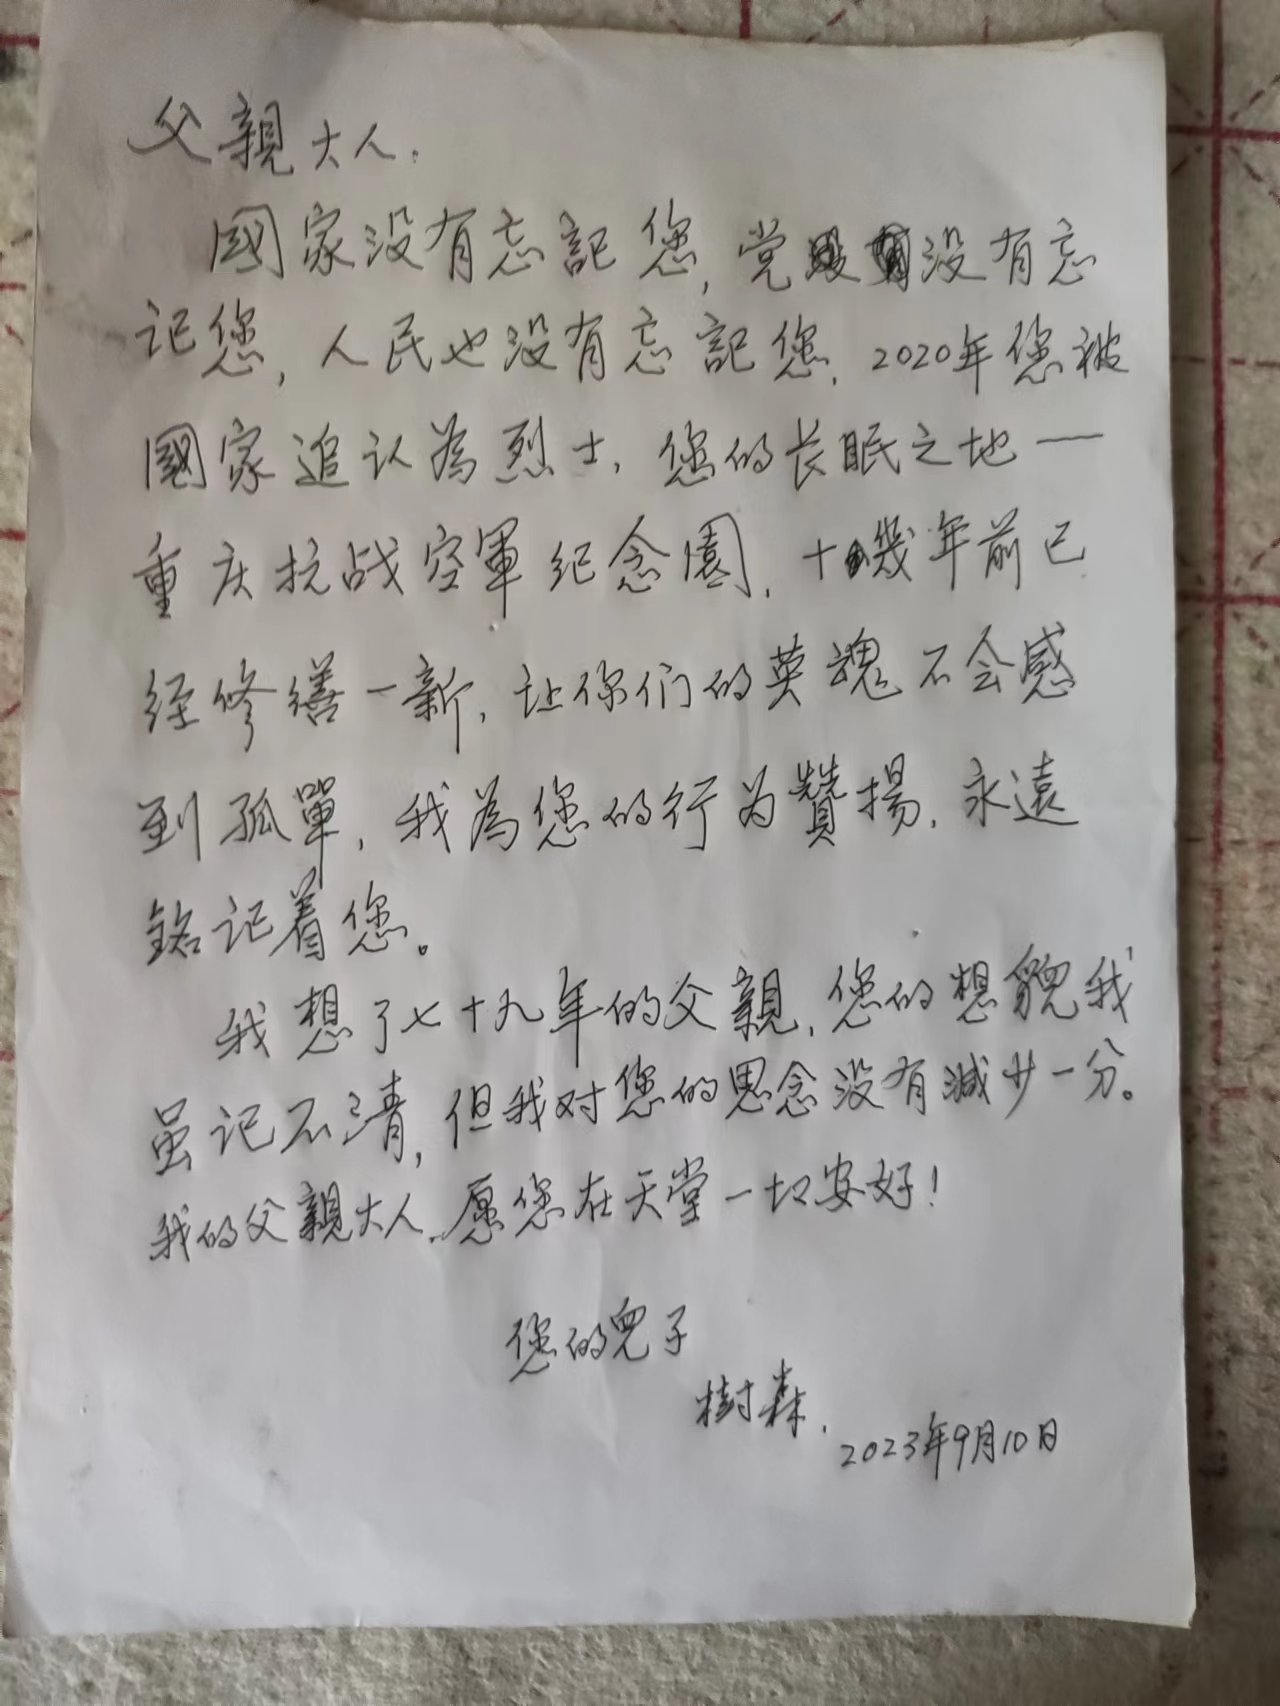 父親大人.
國家没有忘記您,党没有忘
记您,人民也没有忘記您.2020年您被
國家追认為烈士,您的长眠之地——
重庆抗战空軍纪念園,十幾年前已
经修缮一新,让你们的英魂不会感
到孤單,我為您的行为贊揚,永遠
銘记着您。
我想了七十九年的父親,您的想貌我
虽记不清,但我对您的思念没有減少一分。
我的父親大人.愿您在天堂一切安好!
您的兒子
樹森.
2023年9月10日